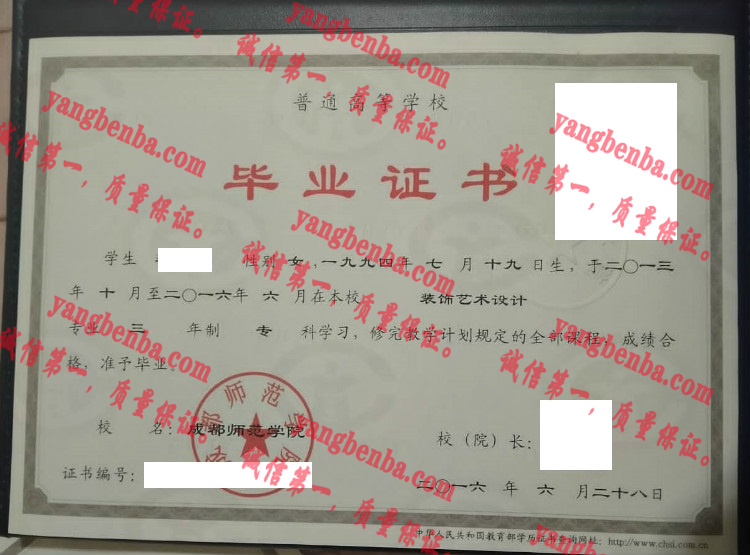 普通高等学校
毕业证书
学生 性别 女 ,一九九四年 七 月 十九 日生, 于二〇一三
年 十 月至二〇一六年 六 月在本校 装饰艺术设计
专业 三 年制 专 科学习, 修完教学计划规定的全部课程, 成绩合
格, 准予毕业。
校 名: 成都师范学院
校（院）长:
证书编号:
二〇一六 年 六 月二十八日
中华人民共和国教育部学历证书查询网址: http://www.chsi.com.cn
yangbenba.com
诚信第一，质量保证。
yangbenba.com
诚信第一，质量保证。
yangbenba.com
诚信第一，质量保证。
yangbenba.com
诚信第一，质量保证。
yangbenba.com
诚信第一，质量保证。
yangbenba.com
诚信第一，质量保证。
yangbenba.com
诚信第一，质量保证。